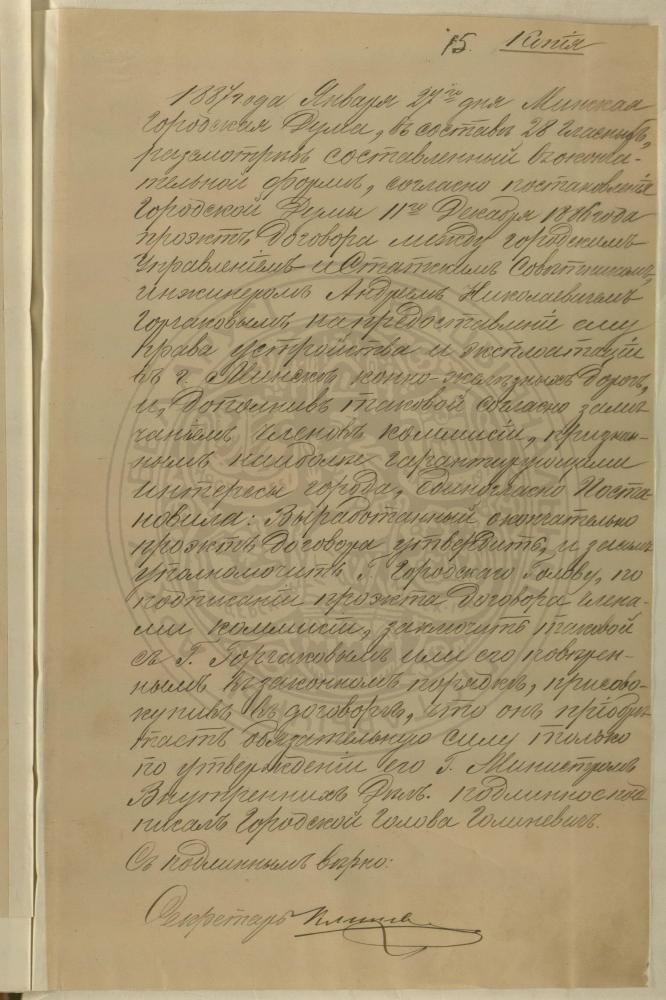 15. Копія
1887 года Января 27го дня Минская
Городская Дума, въ составѣ 28 гласныхъ,
разсмотрѣвъ составленный въ оконча-
тельной формѣ, согласно постановленія
Городской Думы 11го Декабря 1886 года
проэктъ договора между городскимъ
Управленіемъ и Статскимъ Совѣтникомъ,
инженеромъ Андреемъ Николаевичемъ
Горчаковымъ, на предоставленіе ему
права устройства и эксплоатаціи
въ г. Минскѣ конно-желѣзныхъ дорогъ,
и, дополнивъ таковой согласно замѣ-
чаніямъ членовъ коммисіи, признан-
нымъ наиболѣе гарантирующими
интересы города, единогласно Поста-
новила: Выработанный окончательно
проэктъ договора утвердить, и затѣмъ
уполномочить Г. Городскаго Голову, по
подписаніи проэкта договора члена-
ми коммисіи, заключить таковой
съ Г. Горчаковымъ или его повѣрен-
нымъ въ законномъ порядкѣ, присово-
купивъ въ договорѣ, что онъ пріобрѣ-
таетъ обязательную силу только
по утвержденіи его Г. Министромъ
Внутреннихъ Дѣлъ. Подлинное под-
писалъ Городской Голова Голиневичъ.
Съ подлиннымъ вѣрно:
Секретарь